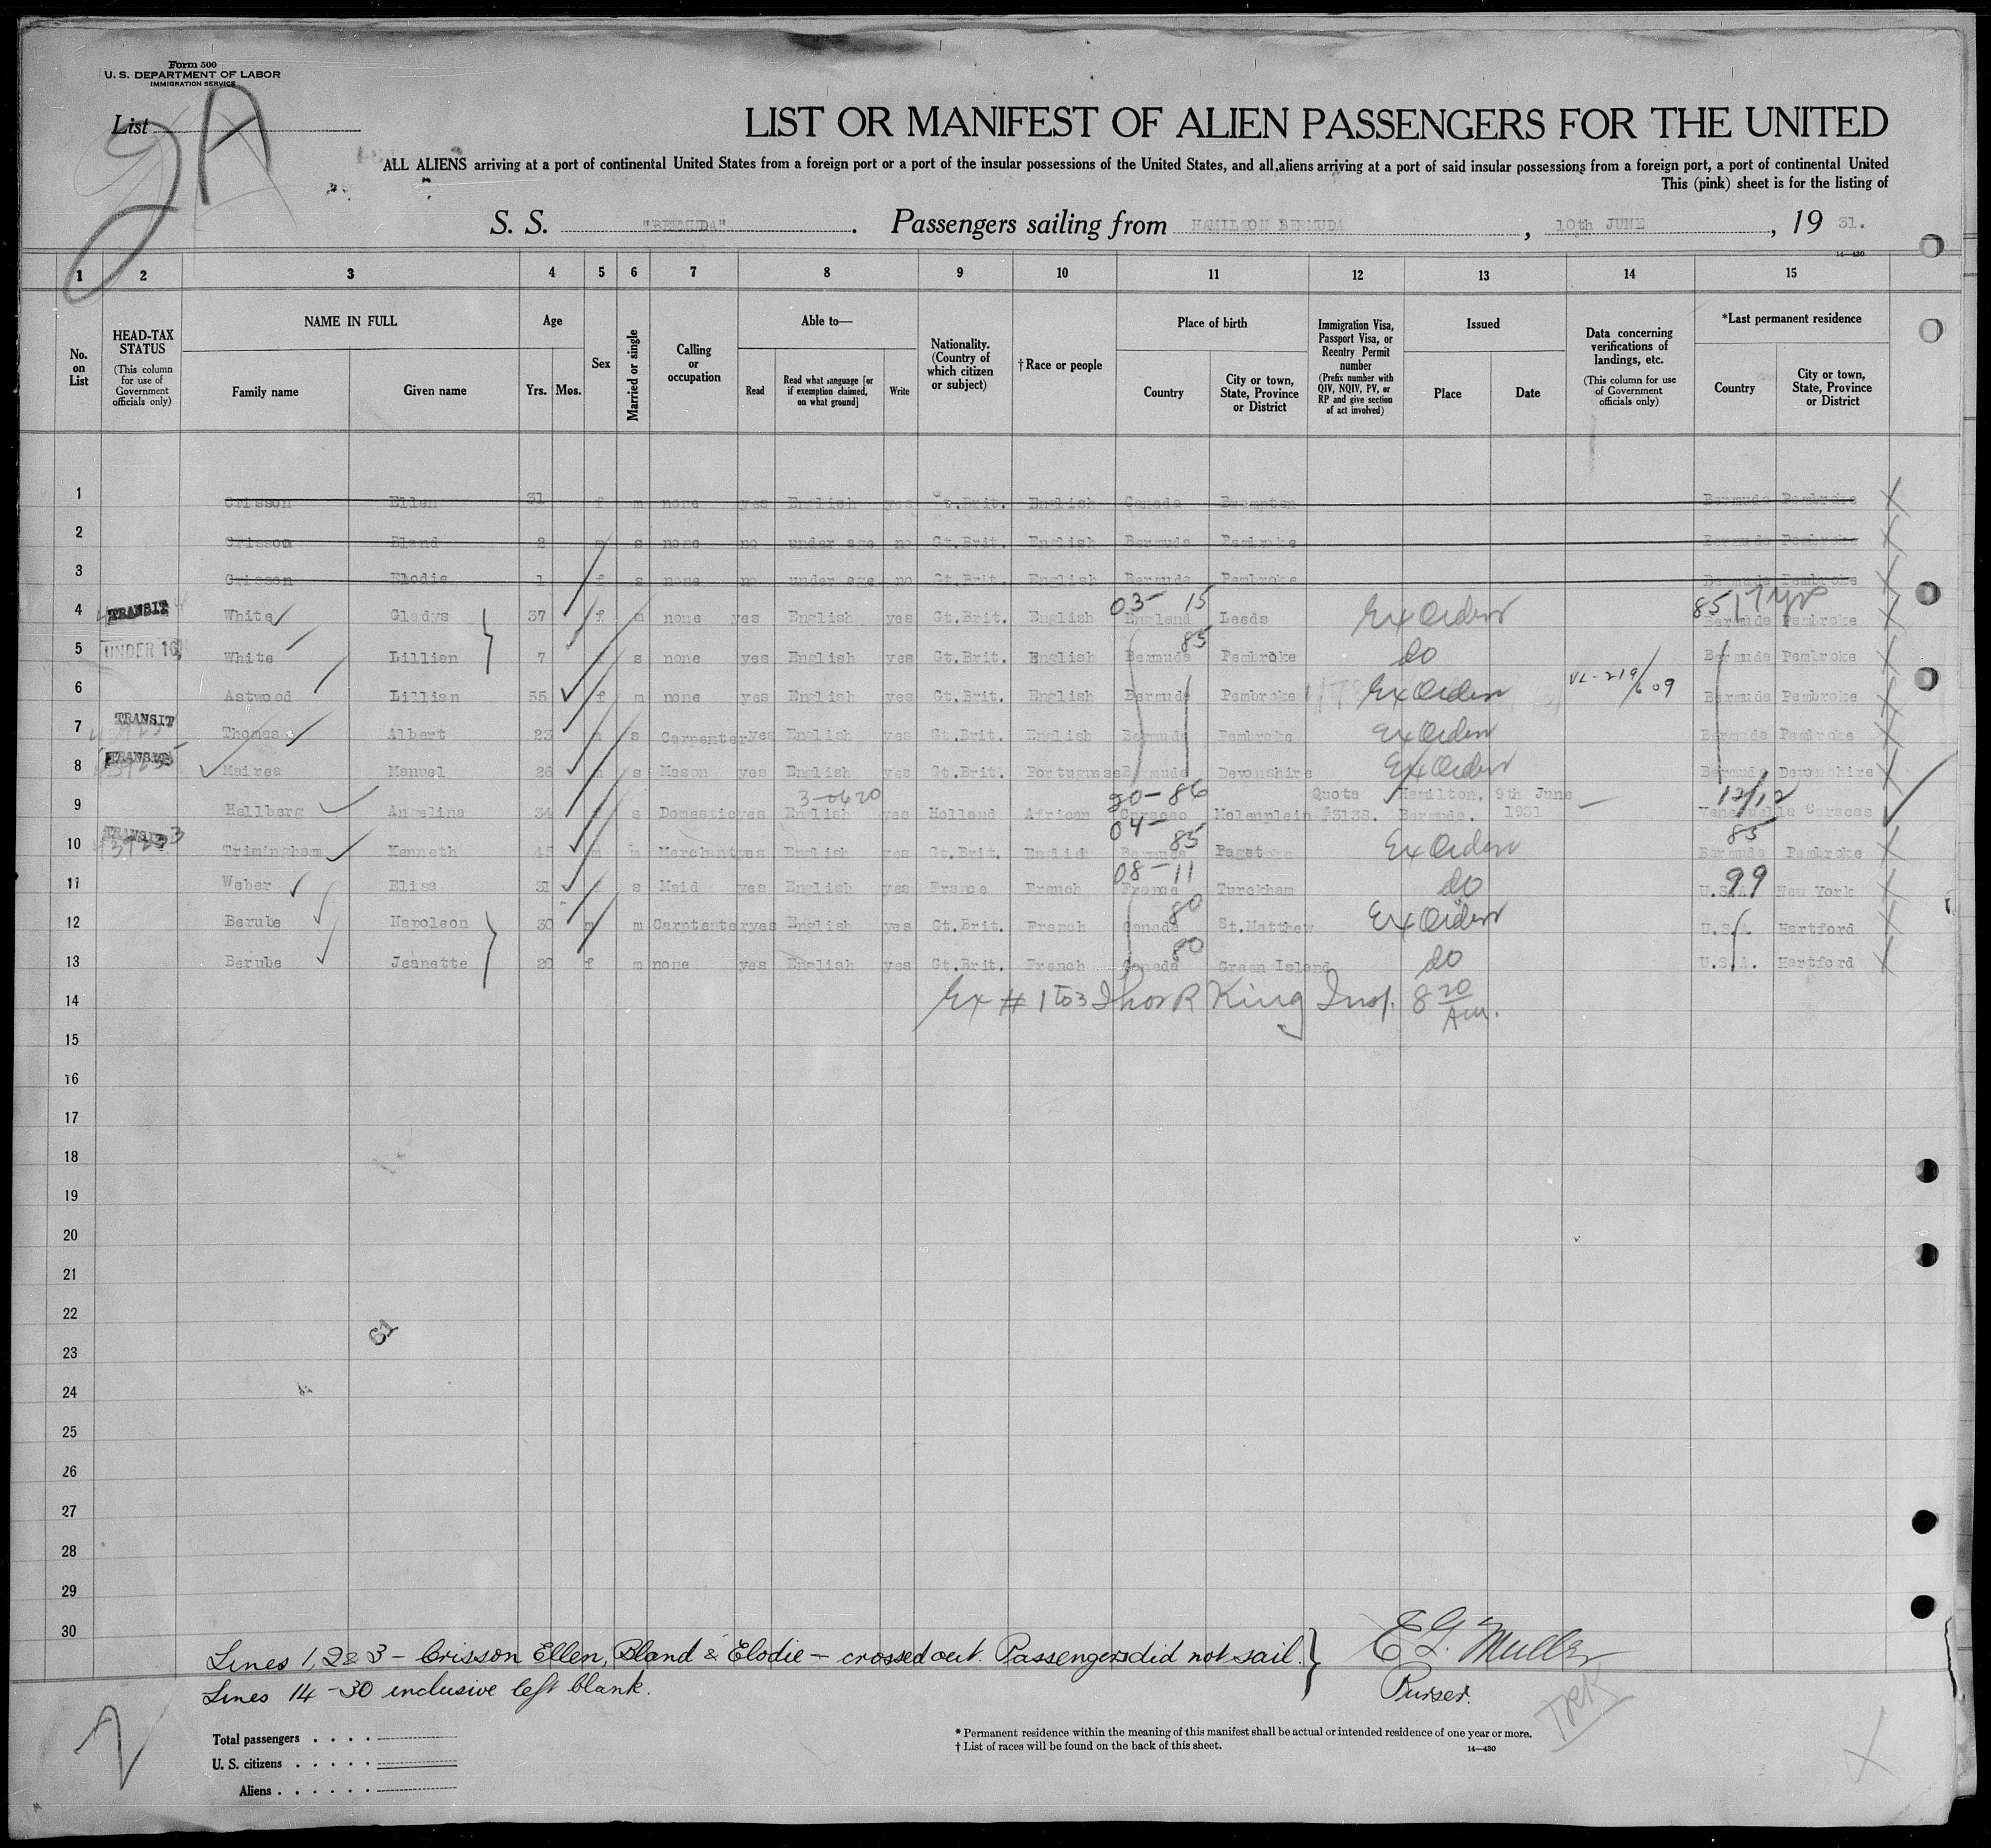 Form 500
U. S. DEPARTMENT OF LABOR
IMMIGRATION SERVICE
List
2A
LIST OR MANIFEST OF ALIEN PASSENGERS FOR THE UNITED
ALL ALIENS arriving at a port of continental United States from a foreign port or a port of the insular possessions of the United States, and all aliens arriving at a port of said insular possessions from a foreign port, a port of continental United
This (pink) sheet is for the listing of
S. S. "BERMUDA". Passengers sailing from HAMILTON BERMUDA, 10th JUNE, 19 31.
14—430
1 2 3 4 5 6 7 8 9 10 11 12 13 14 15
No. on List
HEAD-TAX STATUS
(This column for use of Government officials only)
NAME IN FULL
Family name Given name
Age
Yrs. Mos.
Sex
Married or single
Calling or occupation
Able to—
Read
Read what language [or if exemption claimed, on what ground]
Write
Nationality. (Country of which citizen or subject)
† Race or people
Place of birth
Country
City or town, State, Province or District
Immigration Visa, Passport Visa, or Reentry Permit number
(Prefix number with QIV, NQIV, PV, or RP and give section of act involved)
Issued
Place Date
Data concerning verifications of landings, etc.
(This column for use of Government officials only)
*Last permanent residence
Country
City or town, State, Province or District
1 Crisson Ellen 31 f m none yes English yes Gt.Brit. English Canada Brampton Bermuda Pembroke
2 Crisson Bland 2 m s none no under age no Gt.Brit. English Bermuda Pembroke Bermuda Pembroke
3 Crisson Elodie 1 f s none no under age no Gt.Brit. English Bermuda Pembroke Bermuda Pembroke
03— 15 85 7 yrs
4 TRANSIT White Gladys 37 f m none yes English yes Gt.Brit. English England Leeds Ex Orden Bermuda Pembroke
85
5 UNDER 16 White Lillian 7 f s none yes English yes Gt.Brit. English Bermuda Pembroke do Bermuda Pembroke
6 Astwood Lillian 55 f m none yes English yes Gt.Brit. English Bermuda Pembroke Ex Orden VL-219/609 Bermuda Pembroke
7 TRANSIT Thomas Albert 23 m s Carpenter yes English yes Gt.Brit. English Bermuda Pembroke Ex Orden Bermuda Pembroke
8 TRANSIT Mairea Manuel 26 m s Mason yes English yes Gt.Brit. Portuguese Bermuda Devonshire Ex Orden Bermuda Devonshire
3-0620 20-86 Quota Hamilton, 9th June 12/12
9 Hellberg Angelina 34 f s Domestic yes English yes Holland African Curacao Molenplein #3138. Bermuda. 1931 Venezuela Caracas
04— 85 85
10 TRANSIT Trimingham Kenneth 45 m m Merchant yes English yes Gt.Brit. English Bermuda Paget Ex Orden Bermuda Pembroke
08-11 99
11 Weber Elisa 31 f s Maid yes English yes France French France Turckham do U.S.A. New York
80
12 Berube Napoleon 30 m m Carptenter yes English yes Gt.Brit. French Canada St.Matthew Ex Orden U.S.A. Hartford
80
13 Berube Jeanette 20 f m none yes English yes Gt.Brit. French Canada Green Island do U.S.A. Hartford
14 Ex # 1 to 3 Thos R King Insp. 8 20 Am.
15
16
17
18
19
20
21
22
61
23
24
25
26
27
28
29
30
Lines 1, 2 & 3 – Crisson Ellen, Bland & Elodie – crossed out. Passengers did not sail.
Lines 14-30 inclusive left blank.
E G. Muller
Purser.
TRK
2
Total passengers
U. S. citizens
Aliens
* Permanent residence within the meaning of this manifest shall be actual or intended residence of one year or more.
† List of races will be found on the back of this sheet.
14—430